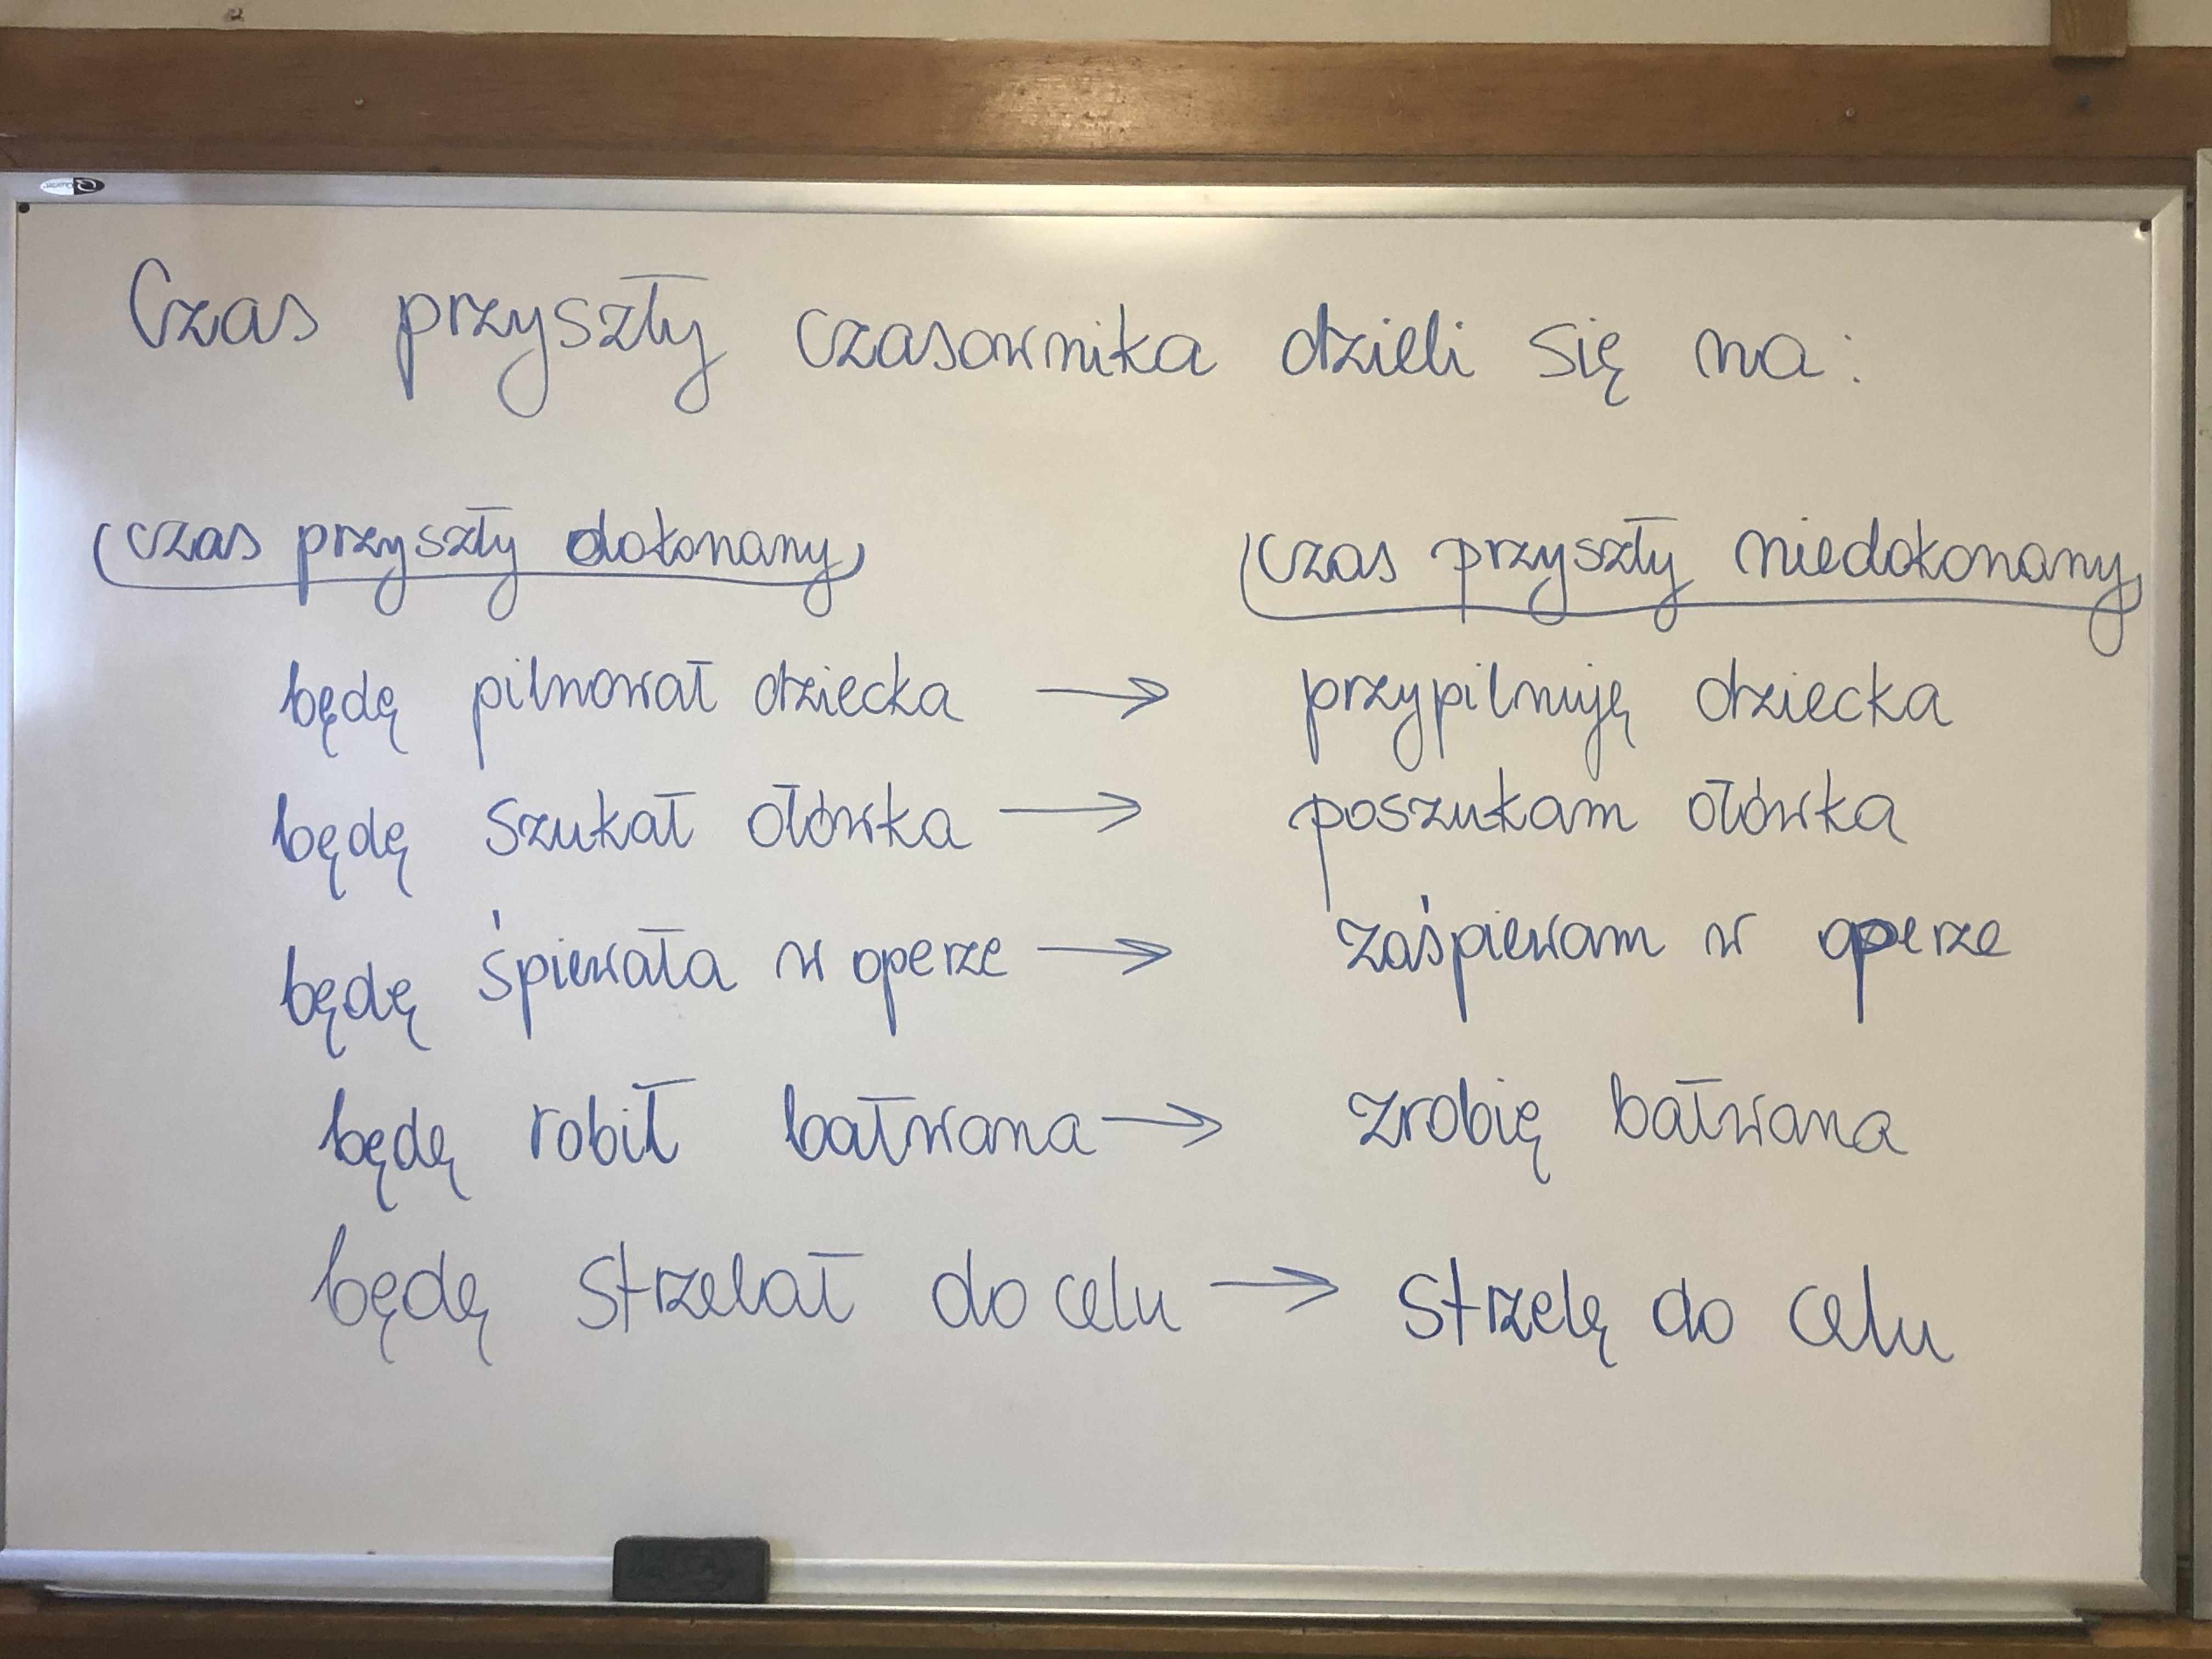 Czas przyszły czasownika dzieli się na:
czas przyszły dokonany czas przyszły niedokonany
będę pilnował dziecka → przypilnuję dziecka
będę szukał ołówka → poszukam ołówka
będę śpiewała w operze → zaśpiewam w operze
będę robił bałwana → zrobię bałwana
będę strzelał do celu → strzelę do celu